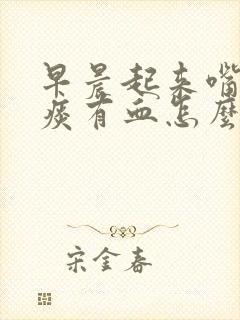 早晨起来嘴
痰有血怎麽
宋金春